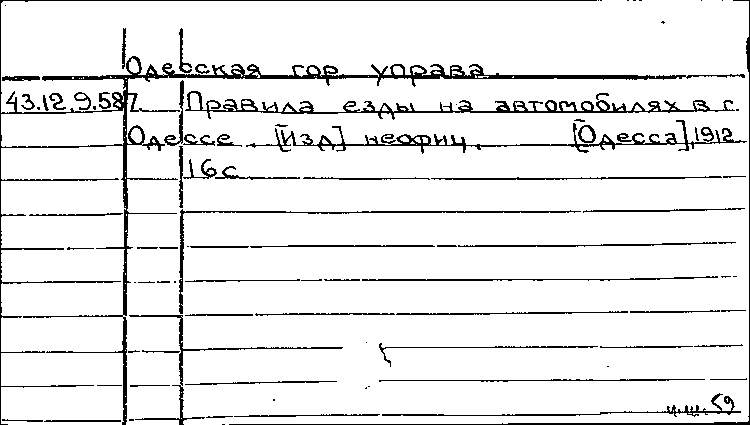 Одесская гор. управа.
43.12.9.587. Правила езды на автомобилях в г.
Одессе. [Изд] неофиц. [Одесса], 1912
16с
59